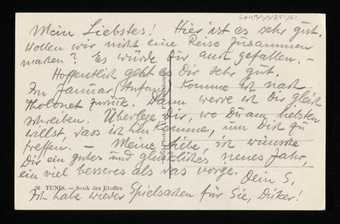 Mein Liebstes! Hier ist es sehr gut.
Wollen wir nicht eine Reise zusammen
machen? Es würde Dir auch gefallen. –
Hoffentlich geht es Dir sehr gut.
Im Januar, Anfang komme ich nach
Tholonet zurück. Dann werde ich Dir gleich
schreiben. Überlege Dir, wo Du am liebsten
willst, dass ich hin komme, um Dich zu
treffen. – Meine Liebe, ich wünsche
Dir ein gutes und glückliches neues Jahr,
ein viel besseres als das vorige. Dein S,
26 TUNIS. – Souk des Etoffes
Ich habe wieder Spielsachen für Sie,